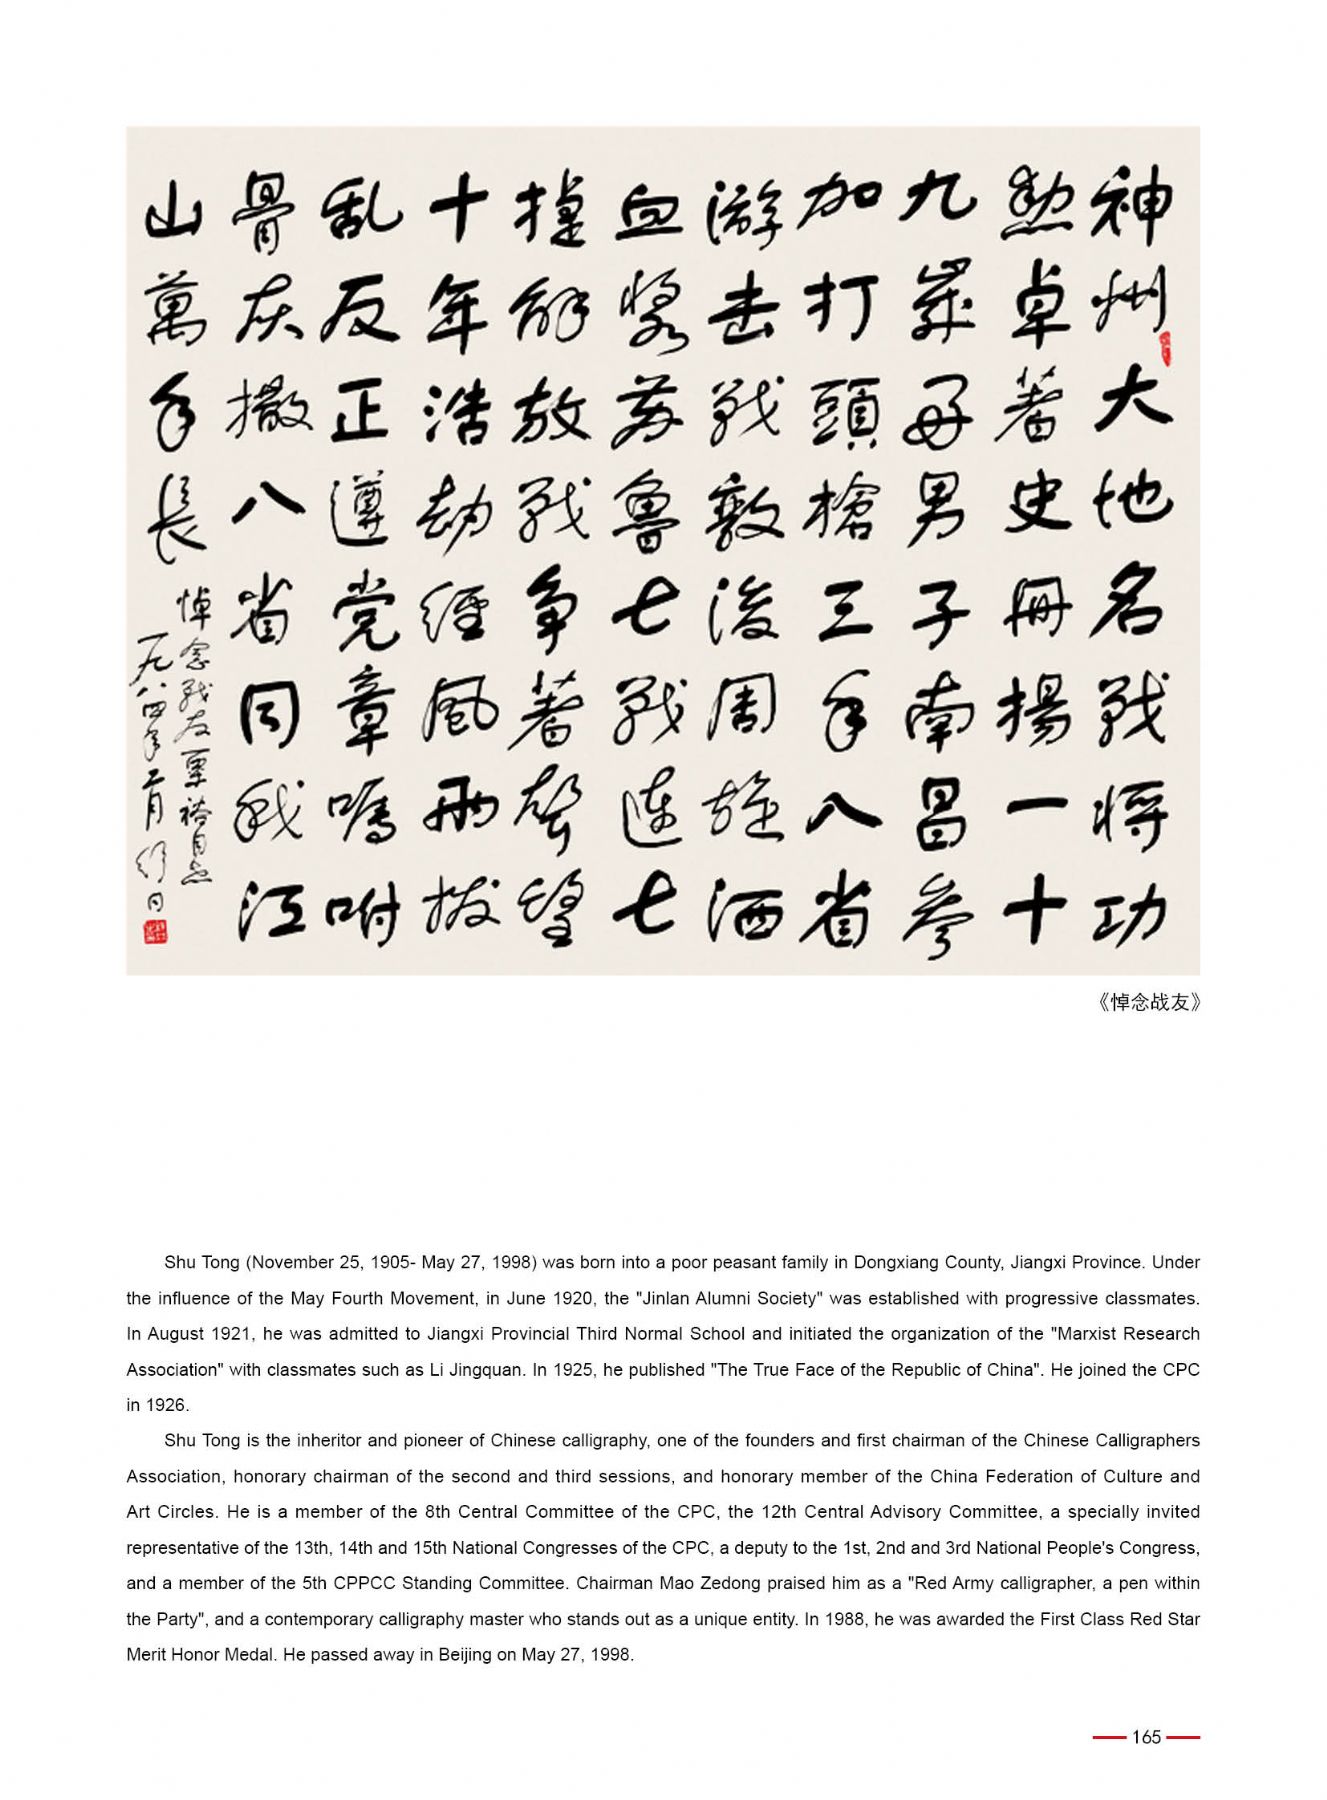 神州大地名战将功
勲卓著史册揚一十
九歲好男子南昌参
加打頭槍三年八省
游击战敵後周旋洒
血浆苏鲁七战连七
捷解放战争著聲望
十年浩劫經風雨拨
乱反正遵党章嘱咐
骨灰撒八省同我江
山萬年長
悼念战友粟裕同志
一九八四年二月 舒同
《悼念战友》
Shu Tong (November 25, 1905- May 27, 1998) was born into a poor peasant family in Dongxiang County, Jiangxi Province. Under
the influence of the May Fourth Movement, in June 1920, the "Jinlan Alumni Society" was established with progressive classmates.
In August 1921, he was admitted to Jiangxi Provincial Third Normal School and initiated the organization of the "Marxist Research
Association" with classmates such as Li Jingquan. In 1925, he published "The True Face of the Republic of China". He joined the CPC
in 1926.
Shu Tong is the inheritor and pioneer of Chinese calligraphy, one of the founders and first chairman of the Chinese Calligraphers
Association, honorary chairman of the second and third sessions, and honorary member of the China Federation of Culture and
Art Circles. He is a member of the 8th Central Committee of the CPC, the 12th Central Advisory Committee, a specially invited
representative of the 13th, 14th and 15th National Congresses of the CPC, a deputy to the 1st, 2nd and 3rd National People's Congress,
and a member of the 5th CPPCC Standing Committee. Chairman Mao Zedong praised him as a "Red Army calligrapher, a pen within
the Party", and a contemporary calligraphy master who stands out as a unique entity. In 1988, he was awarded the First Class Red Star
Merit Honor Medal. He passed away in Beijing on May 27, 1998.
165